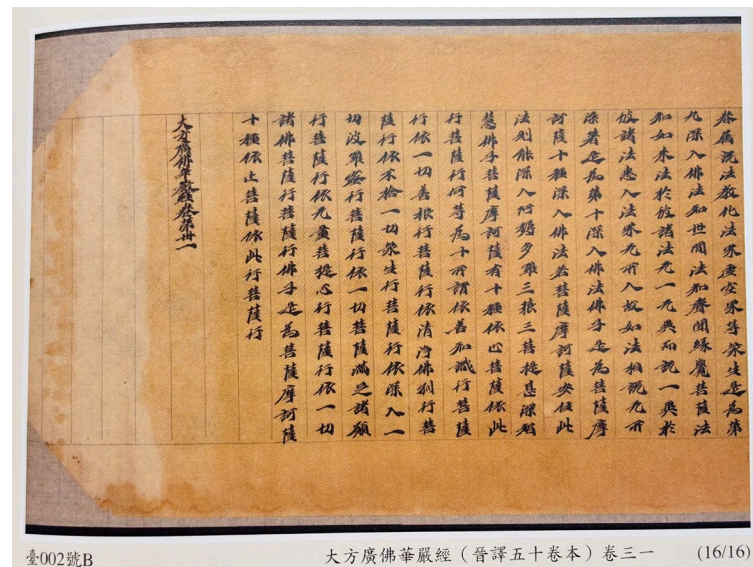 眷屬說法教化法界虛空界等衆生是為第
九深入佛法知世間法知聲聞緣覺菩薩法
知如来法於彼諸法无一无異而說一異於
彼諸法悉入法界无所入故如法相說无所
染著是為第十深入佛法佛子是為菩薩摩
訶薩十種深入佛法若菩薩摩訶薩安住此
法則能深入阿耨多羅三藐三菩提甚深智
慧佛子菩薩摩訶薩有十種依止菩薩依此
行菩薩行何等為十所謂依善知識行菩薩
行依一切善根行菩薩行依清淨佛剎行菩
薩行依不捨一切衆生行菩薩行依深入一
切波羅蜜行菩薩行依一切菩薩滿足諸願
行菩薩行依无量菩提心行菩薩行依一切
諸佛菩薩行菩薩行佛子是為菩薩摩訶薩
十種依止菩薩依此行菩薩行
大方廣佛華嚴經卷第卅一
臺002號B
大方廣佛華嚴經（晉譯五十卷本）卷三一
(16/16)